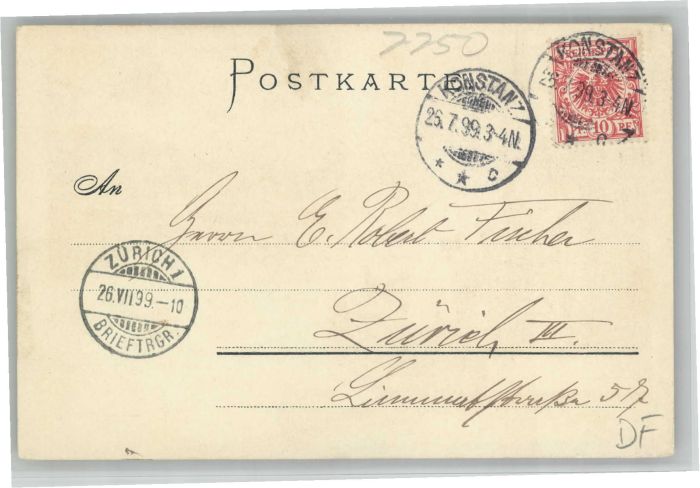 7750
POSTKARTE
KONSTANZ
26.7.99.3-4N.
* * c
KONSTANZ
10 PF
An
Herrn E. Robert Fischer
ZÜRICH 1
26.VII.99.-10
BRIEFTRGR.
Zürich III.
Limmatstraße 57
DF